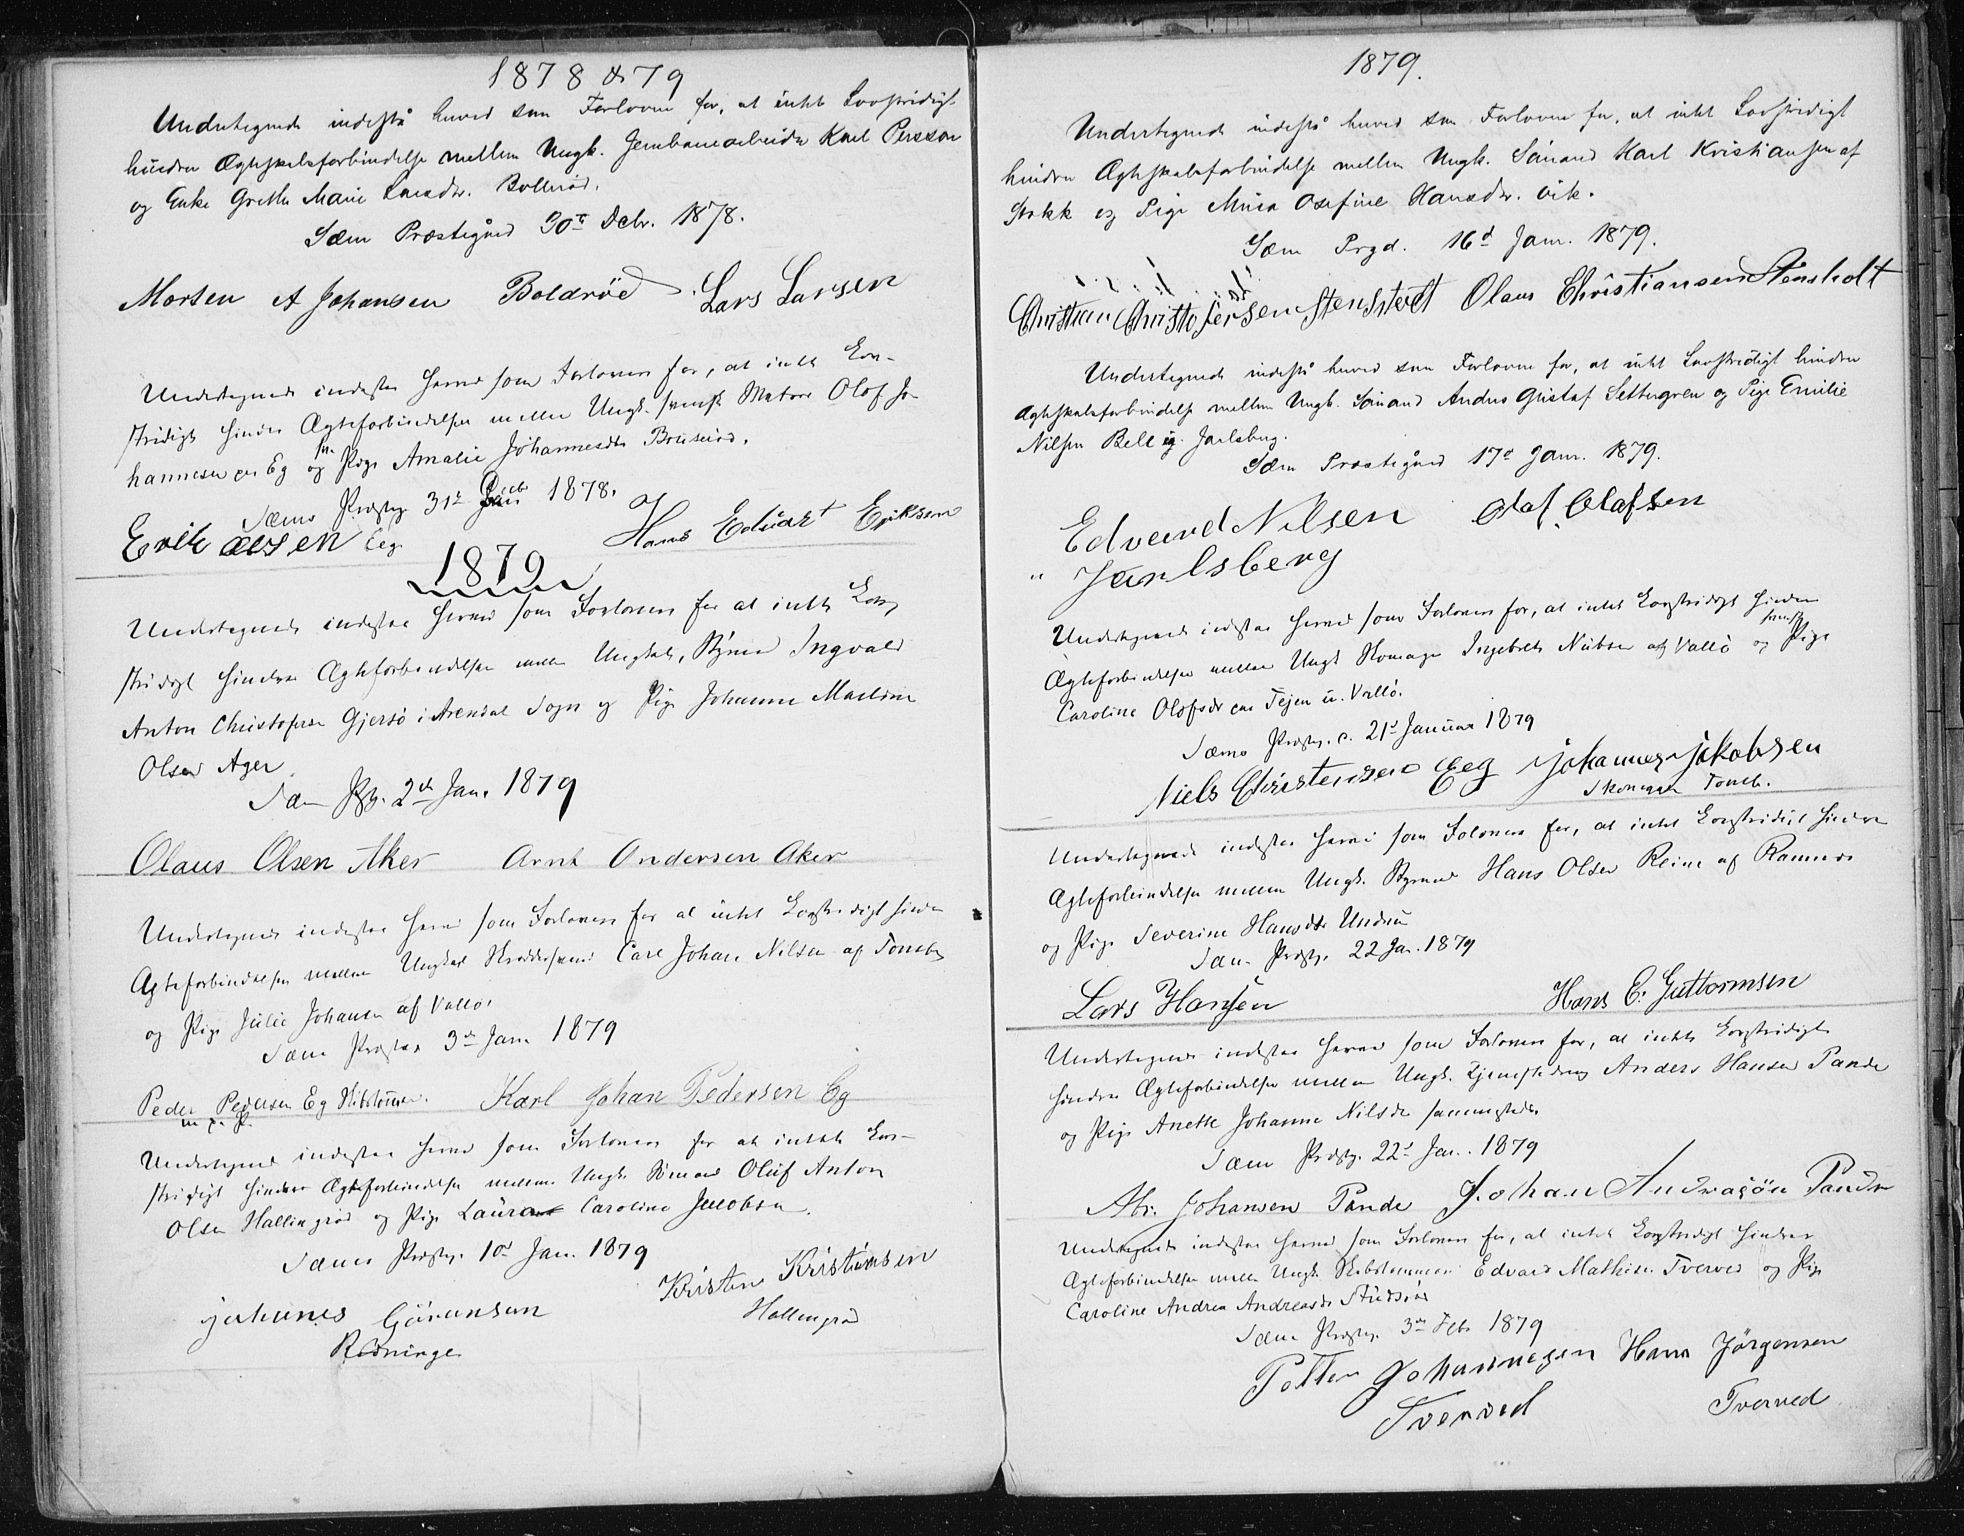 1878 & 79
Undertegnede indestå herved som Forlovere for, at intet Lovstridigt
hindrer Ægteskabsforbindelse mellem Ungk. Jernbanearbeider Karl Persson
og Enke Grethe Marie Larsdr. Bollerød.
Sæm Præstegård 30te Decbr. 1878.
Morten A Johansen Boldröd. Lars Larsen
Undertegnede indestaa herved som Forlovere for, at intet Lov-
stridigt hindrer Ægteforbindelsen mellem Ungk. svensk Matros Olof Jo-
hannesen paa Eg og sv. Pige Amalie Johannesdtr Bruserød.
Sæms Præstg. 31te Decb 1878.
Erik Olsen Eeg Hans Eduart Eriksen
1879
Undertegnede indestaa herved som Forlovere for at intet Lov-
stridigt hindrer Ægteforbindelsen mellem Ungkarl, Styrmd Ingvald
Anton Christofersen Gjersø i Arendal Sogn og Pige Johanne Mathine
Olsen Ager
Sæm Pgd. 2den Jan. 1879
Olaus Olsen Aker Arnt Andersen Aker
Undertegnede indestaa herved som Forlovere for at intet Lovstridigt hindrer
Ægteforbindelsen mellem Ungkarl Skreddersvend Carl Johan Nilsen af Tønsbg
og Pige Julie Johansen af Vallø.
Sæm Præstg. 3die Jan. 1879
Peder Pedersen Eg Skibstømmer. Karl Johan Pedersen Eg
m. p. P.
Undertegnede indestaa herved som Forlovere for at intet Lov-
stridigt hindrer Ægteforbindelse mellem Ungk. Sømand Oluf Anton
Olsen Hallingrød og Pige Laura Caroline Jacobsen.
Sæms Præstg. 10de Jan. 1879
Johanes Göransen Kristen Kristiansen
Rødninge Hallingrød
1879.
Undertegnede indestå herved som Forlovere for, at intet Lovstridigt
hindrer Ægteskabsforbindelse mellem Ungk. Sømand Karl Kristiansen af
Stokk og Pige Mina Josefine Hansdr. Vik.
Sæm Prgd. 16d Jan. 1879.
Christian Christofersen Stensholdt Olaus Christiansen Stensholt
Undertegnede indestå herved som Forlovere for, at intet Lovstridigt hindrer
Ægteskabsforbindelse mellem Ungk. Sömand Andres Gustaf Settergren og Pige Emilie
Nilsen Bell eg. Jarlsberg.
Sæm Præstegård 17d Jan. 1879.
Edvard Nilsen Olaf Olafsen
" Jarlsberg
Undertegnede indestaa herved som Forlovere for, at intet Lovstridigt hindrer
Ægteforbindelsen mellem Ungk Skomager Ingebret Nubsen af Vallø og svensk Pige
Caroline Olofsdr paa Tejen u. Vallø.
Sæms Præstg. d. 21de Januar 1879
Niels Christensen Eeg Johannes Jakobsen
Skomager Tønsb.
Undertegnede indestaa herved som Forlovere for, at intet Lovstridigt hindrer
Ægteforbindelsen mellem Ungk. Styrmd Hans Olsen Reine af Ramnes
og Pige Severine Hansdtr Undrum
Sæms Præstg. 22 Jan. 1879
Lars Hansen Hans C. Guttormsen
Undertegnede indestaa herved som Forlovere for, at intet Lovstridigt
hindrer Ægteforbindelse mellem Ungk. Tjenestedreng Anders Hansen Pande
og Pige Anette Johanne Nilsdr sammesteds
Sæm Præstg. 22de Jan. 1879
Abr. Johansen Pande Johan Andrasön Pande
Undertegnede indestaa herved som Forlovere for, at intet Lovstridigt hindrer
Ægteforbindelse mellem Ungk. Skibstømmermd Edvard Mathisen Tverved og Pige
Caroline Andrea Andreasdr Stusrød
Sæm Præstg. 3die Feb. 1879
Petter Johannesen Hans Jörgensen
Tverved Tverved